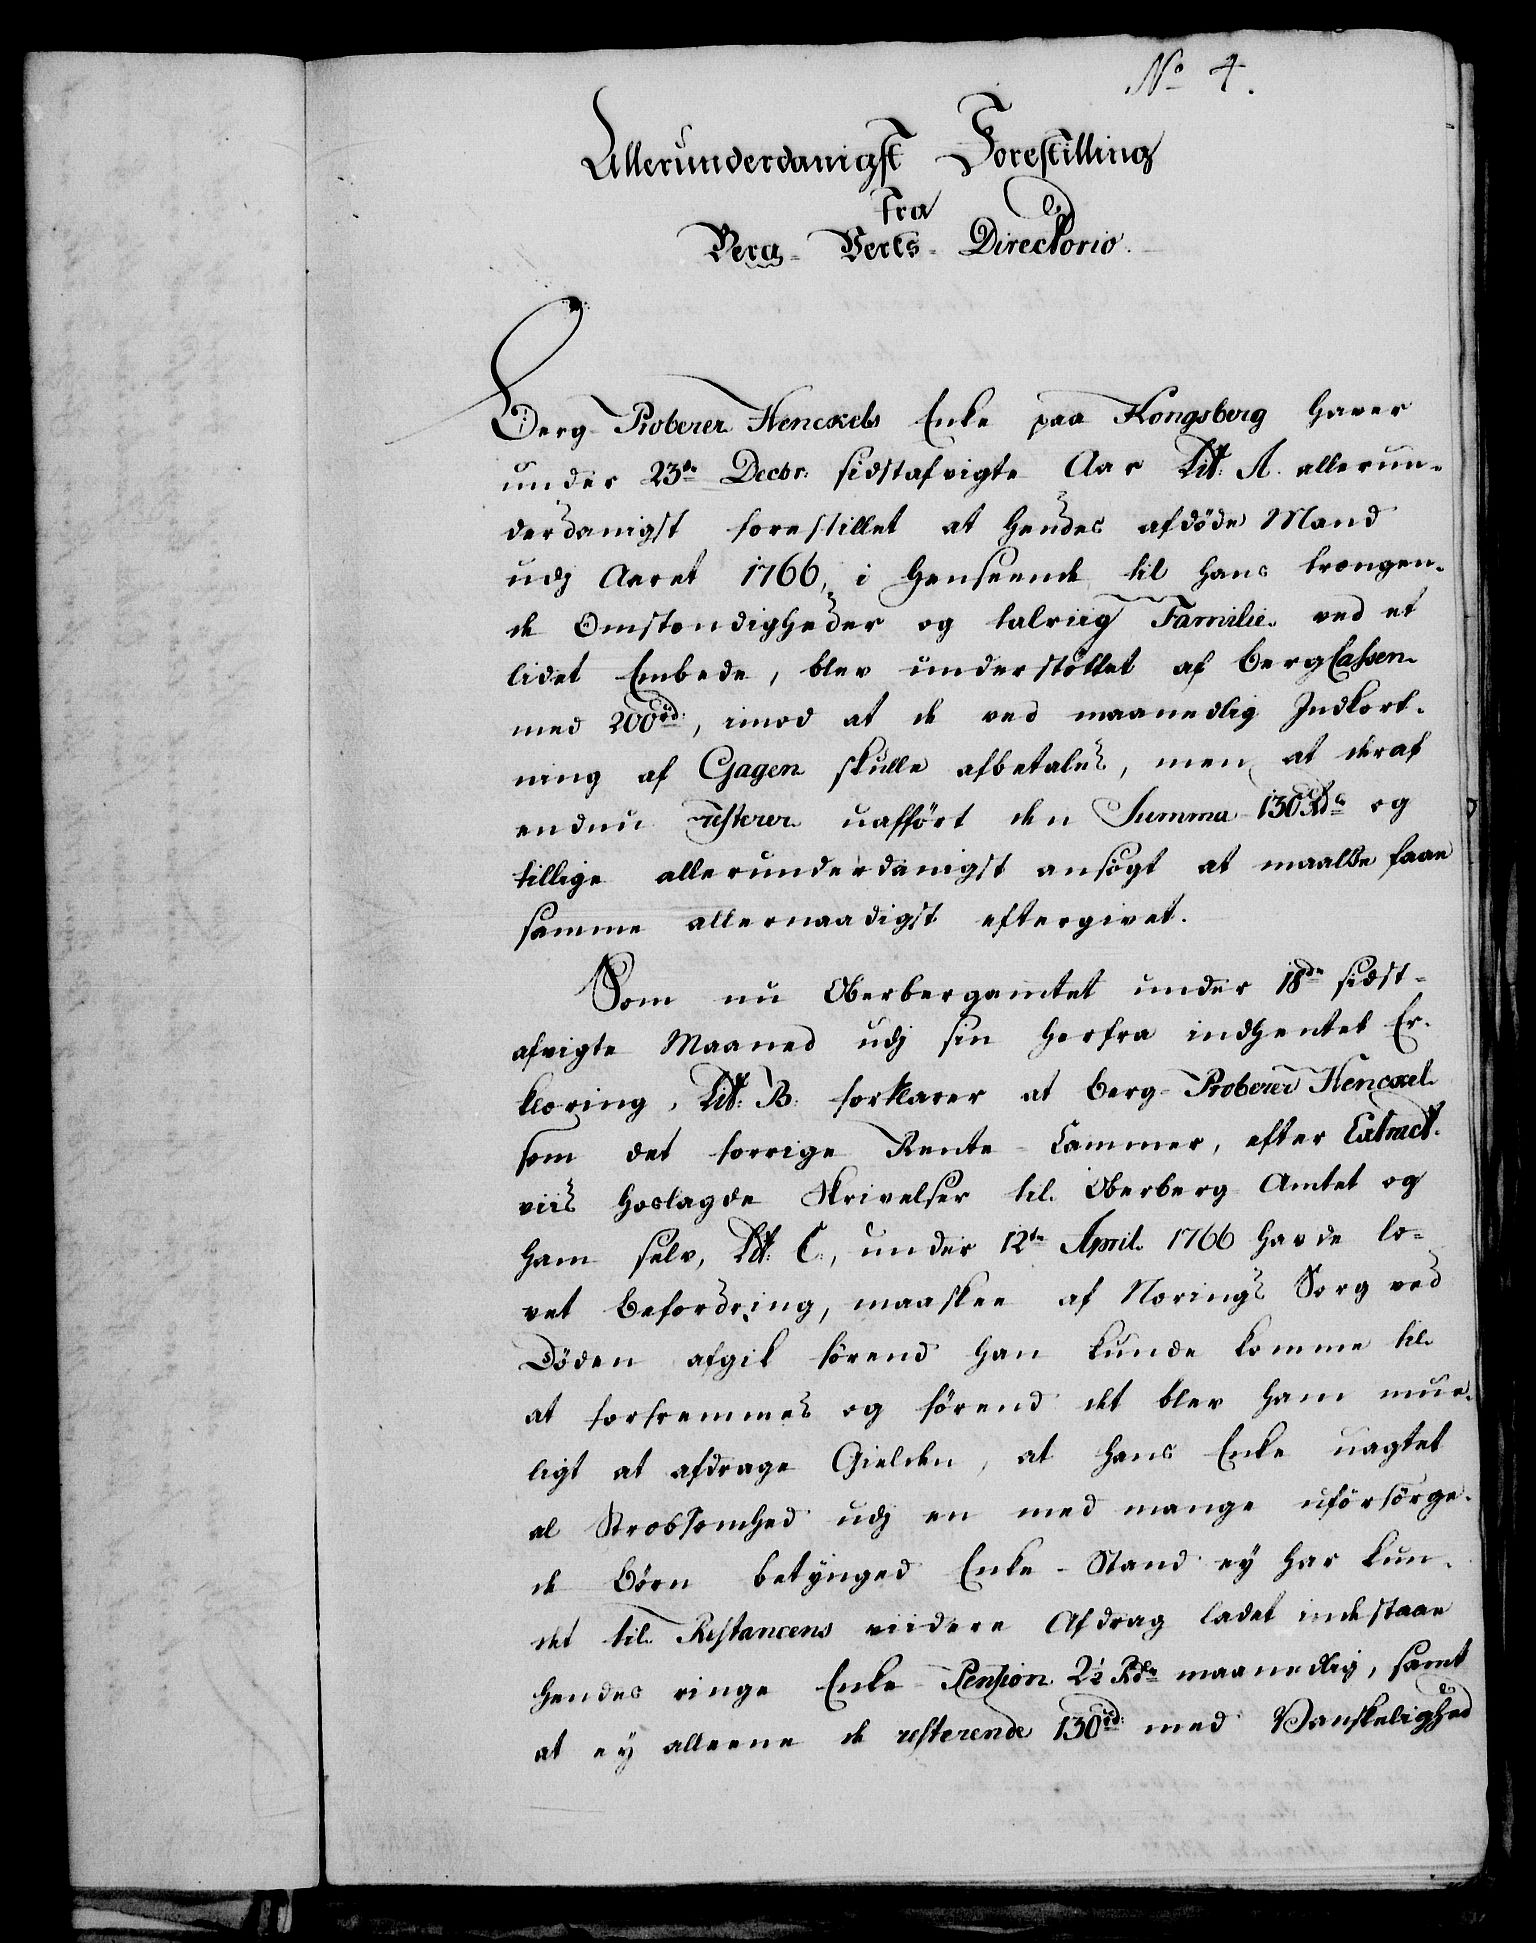 No 4.
Allerunderdanigst Forestilling
fra
Berg-Verks-Directorio.
Berg-Proberer Henckels Enke paa Kongsberg haver
under 23de Decbr: sidstafvigte Aar Lit: A. allerun-
derdanigst forestillet at hendes afdøde Mand
udj Aaret 1766, i henseende til hans trængen-
de Omstændigheder og talriig Familie ved et
lidet Embede, blev understøttet af BergCassen
med 200rd:, imod at de ved maanedlig Indkort-
ning af Gagen skulle afbetales, men at deraf
endnu resterer uafført den Summa 130 Rdr og
tillige allerunderdanigst ansøgt at maatte faae
samme allernaadigst eftergivet.
Som nu Oberbergamtet under 18de sidst-
afvigte Maaned udj sin herfra indhentet Er-
klæring, Lit: B. forklarer at Berg-Proberer Henckel
som det forrige Rente-Cammer, efter Extract-
viis hoslagde Skrivelser til Oberberg-Amtet og
ham selv, Lit: C, under 12te April 1766 havde lo-
vet befordring, maaskee af Nærings Sorg ved
Døden afgikførend han kunde komme til
at forfremmes og førend det blev ham mue-
ligt at afdrage Gielden, at hans Enke uagtet
al Stræbsomhed udj en med mange uforsørge-
de Børn betynged Enke-Stand ey har kun-
det til Restancens viidere Afdrag ladet indestaae
hendes ringe Enke-Pension 2½ Rdr maanedlig, samt
at ey alleene de resterende 130rd: med Vanskelighed